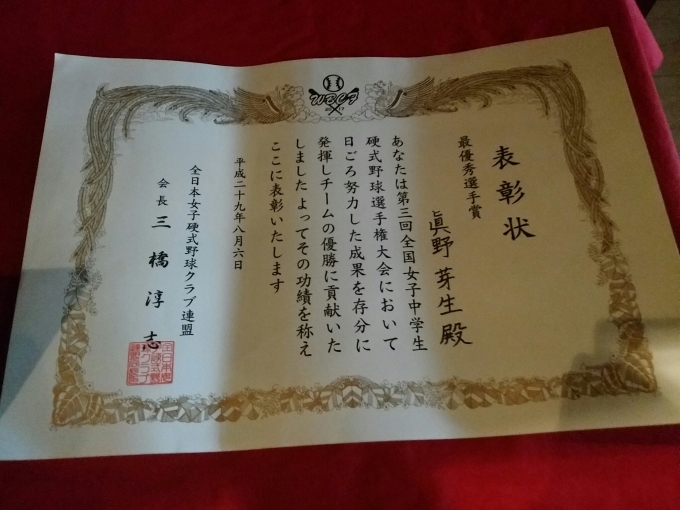 WBCF
表彰状
最優秀選手賞
眞野芽生殿
あなたは第三回全国女子中学生
硬式野球選手権大会において
日ごろ努力した成果を存分に
発揮しチームの優勝に貢献いた
しました よってその功績を称え
ここに表彰いたします
平成二十九年八月六日
全日本女子硬式野球クラブ連盟
会長 三橋淳志